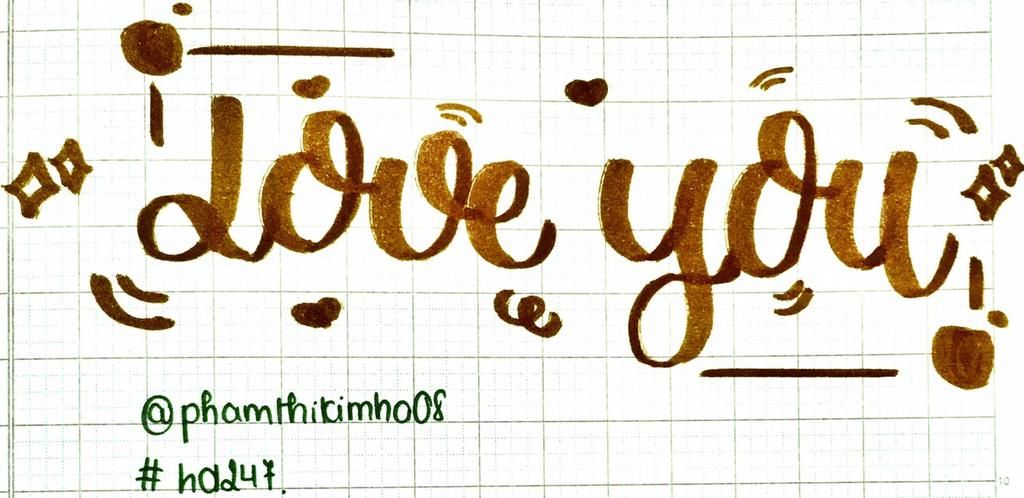 Love you
@phamthikimho08
# hd247.